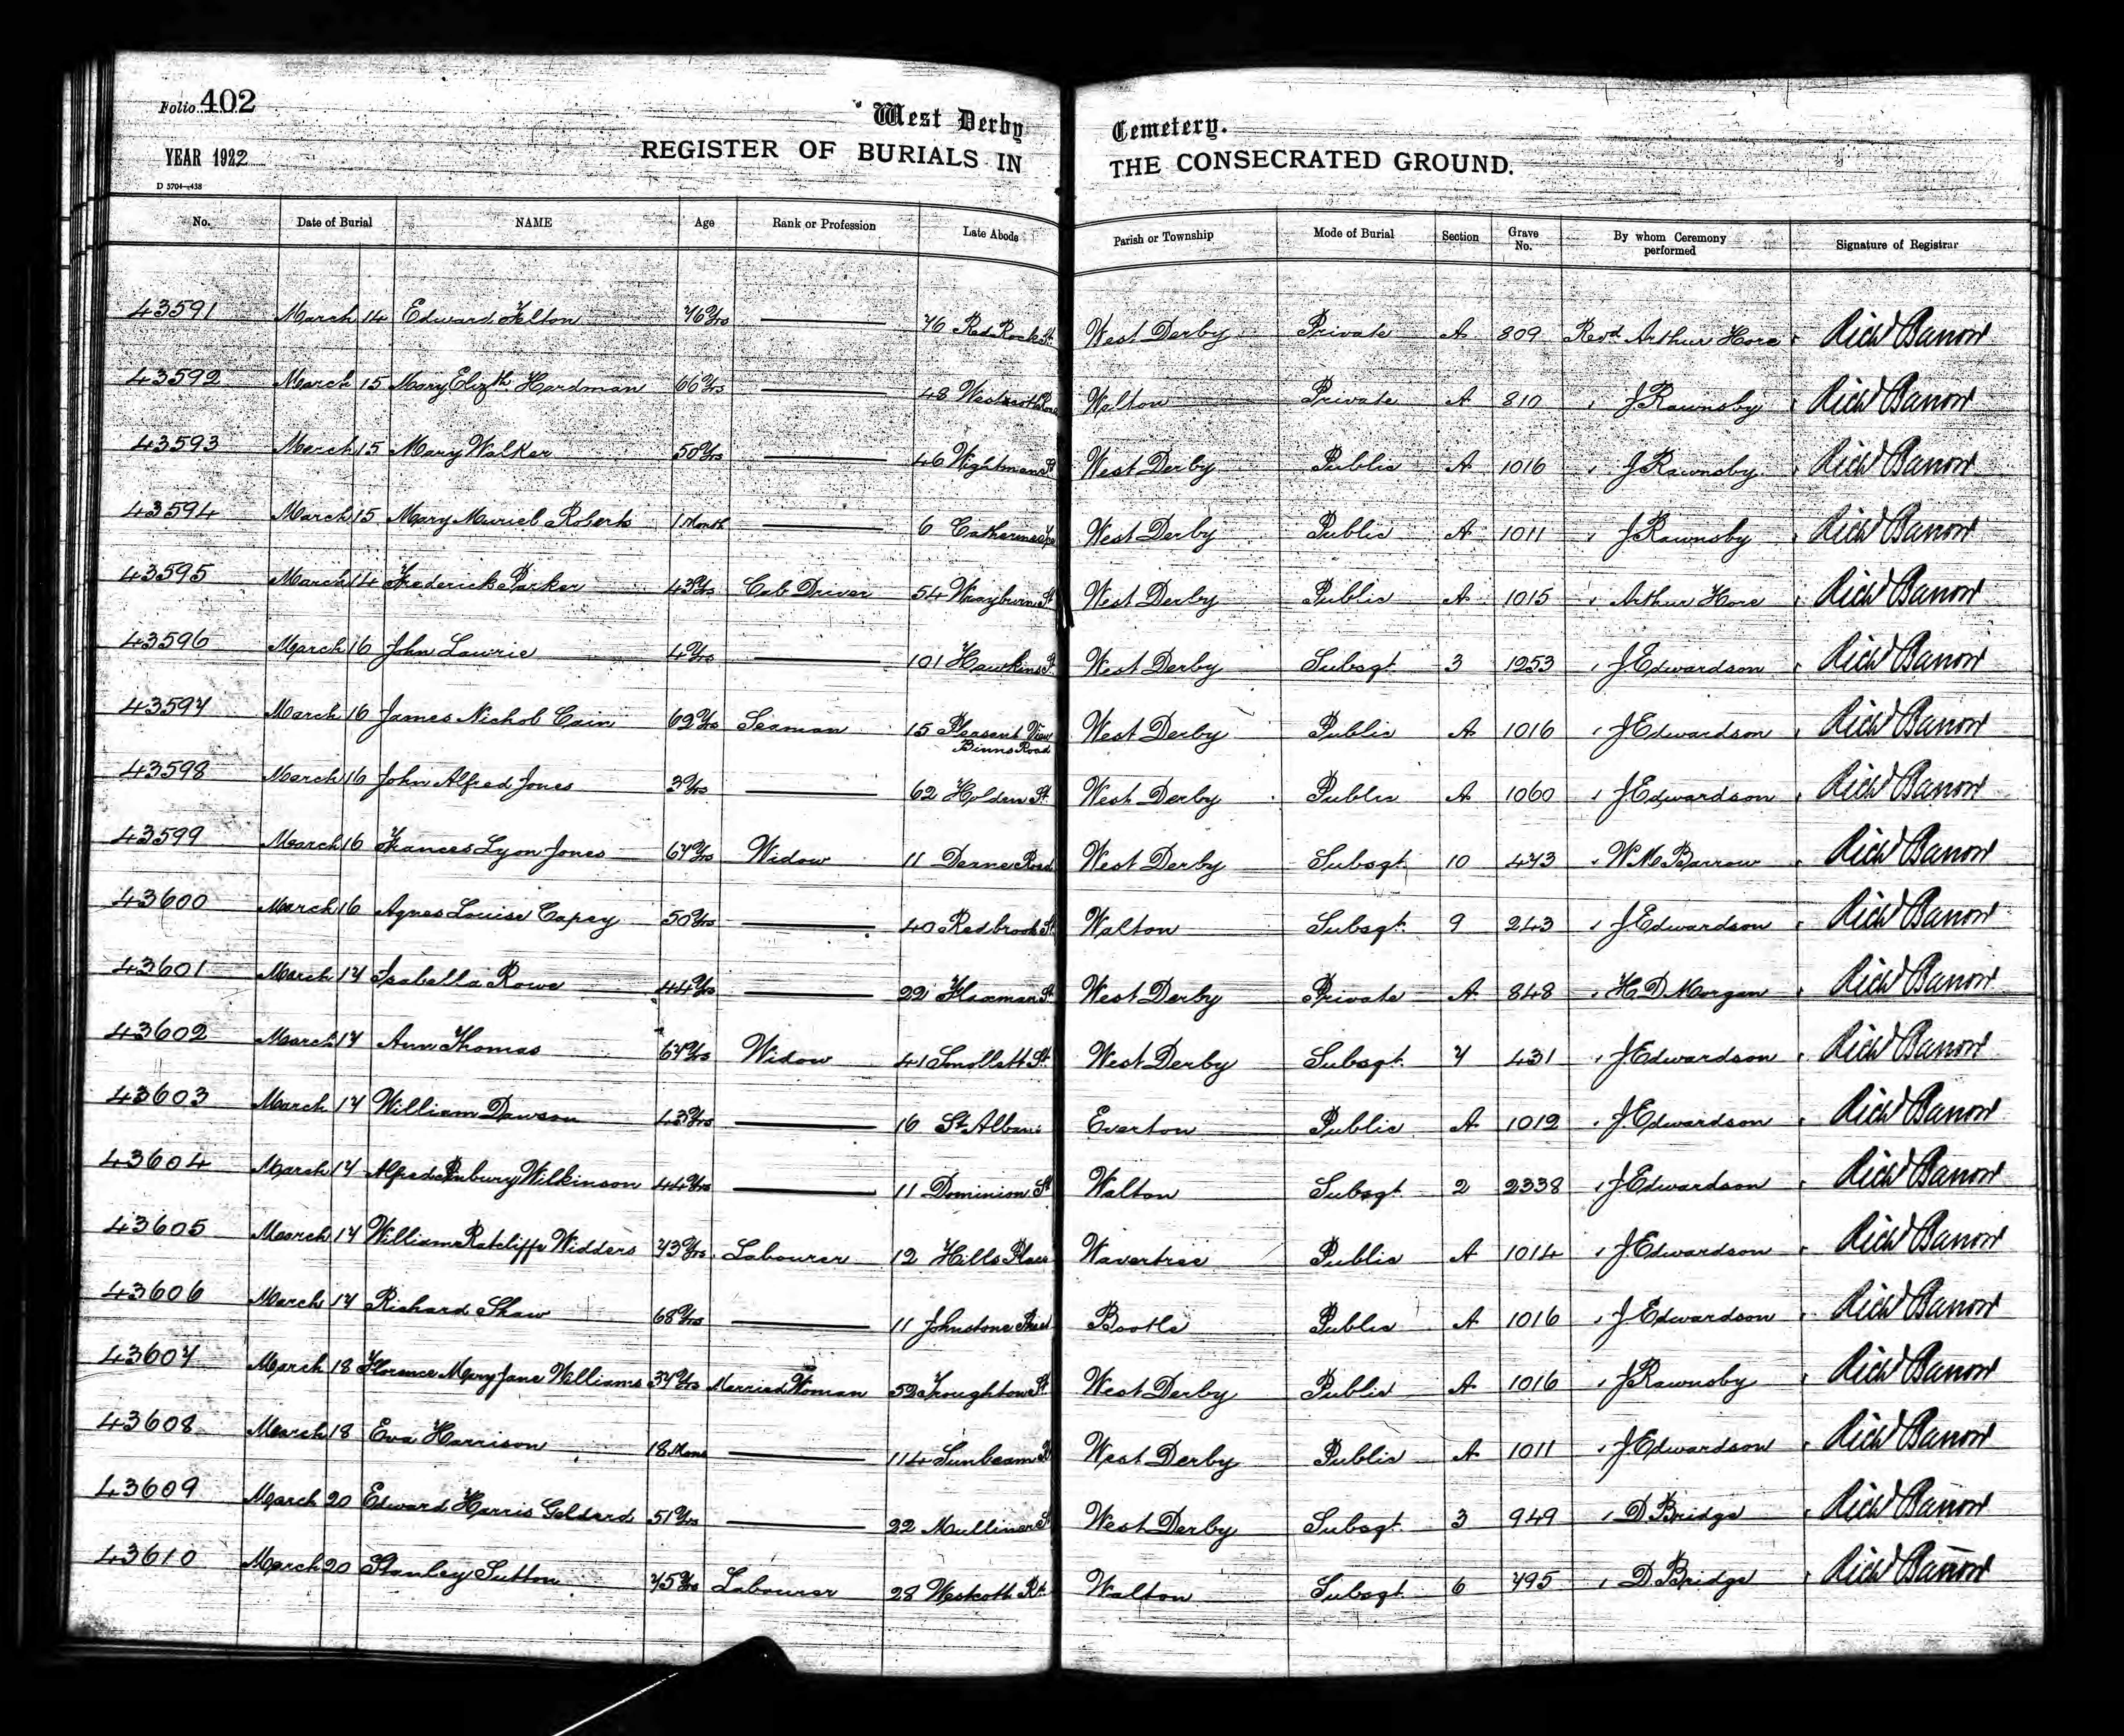 Folio 402
West Derby Cemetery.
YEAR 1922
REGISTER OF BURIALS IN THE CONSECRATED GROUND.
D 5704—438
No. Date of Burial NAME Age Rank or Profession Late Abode Parish or Township Mode of Burial Section Grave No. By whom Ceremony performed Signature of Registrar
43591 March 14 Edward Felton 76 Yrs 76 Red Rock St. West Derby Private A 809 Revd. Arthur Hore Richd Barrow
43592 March 15 Mary Elizth Hardman 66 Yrs 48 Westcott Road Walton Private A 810 " J Rawnsby Richd Barrow
43593 March 15 Mary Walker 50 Yrs 46 Wightman St West Derby Public A 1016 " J Rawnsby Richd Barrow
43594 March 15 Mary Muriel Roberts 1 Month 6 Catherine West Derby Public A 1011 " J Rawnsby Richd Barrow
43595 March 14 Frederick Parker 43 Yrs Cab Driver 54 Wrayburn St West Derby Public A 1015 " Arthur Hore Richd Barrow
43596 March 16 John Lawrie 4 Yrs 101 Hawkins St West Derby Subsqt 3 1253 " J Edwardson Richd Barrow
43597 March 16 James Nichol Cain 62 Yrs Seaman 15 Pleasant View Binns Road West Derby Public A 1016 " J Edwardson Richd Barrow
43598 March 16 John Alfred Jones 3 Yrs 62 Holden St West Derby Public A 1060 " J Edwardson Richd Barrow
43599 March 16 Frances Lyon Jones 67 Yrs Widow 11 Deane Road West Derby Subsqt 10 473 " W M Barrow Richd Barrow
43600 March 16 Agnes Louise Capey 50 Yrs 40 Redbrook St Walton Subsqt. 9 243 " J Edwardson Richd Barrow
43601 March 17 Isabella Rowe 44 Yrs 22 Flaxman St West Derby Private A 848 " H D Morgan Richd Barrow
43602 March 17 Ann Thomas 67 Yrs Widow 41 Smollett St West Derby Subsqt. 7 431 " J Edwardson Richd Barrow
43603 March 17 William Dawson 43 Yrs 16 St Albans Everton Public A 1012 " J Edwardson Richd Barrow
43604 March 17 Alfred Wilkinson 44 Yrs 11 Dominion St Walton Subsqt 2 2338 " J Edwardson Richd Barrow
43605 March 17 William Ratcliffe Widders 73 Yrs Labourer 12 Hills Place Wavertree Public A 1014 " J Edwardson Richd Barrow
43606 March 17 Richard Shaw 68 Yrs 11 Johnstone Street Bootle Public A 1016 " J Edwardson Richd Barrow
43607 March 18 Florence Mary Jane Williams 37 Yrs Married Woman 52 Troughton St West Derby Public A 1016 " J Rawnsby Richd Barrow
43608 March 18 Eva Harrison 18 Mons 114 Sunbeam Rd West Derby Public A 1011 " J Edwardson Richd Barrow
43609 March 20 Edward Harris Geldard 51 Yrs 22 Mulliner St West Derby Subsqt. 3 949 " D Bridge Richd Barrow
43610 March 20 Stanley Sutton 75 Yrs Labourer 28 Westcott Rd. Walton Subsqt. 6 795 " D Bridge Richd Barrow